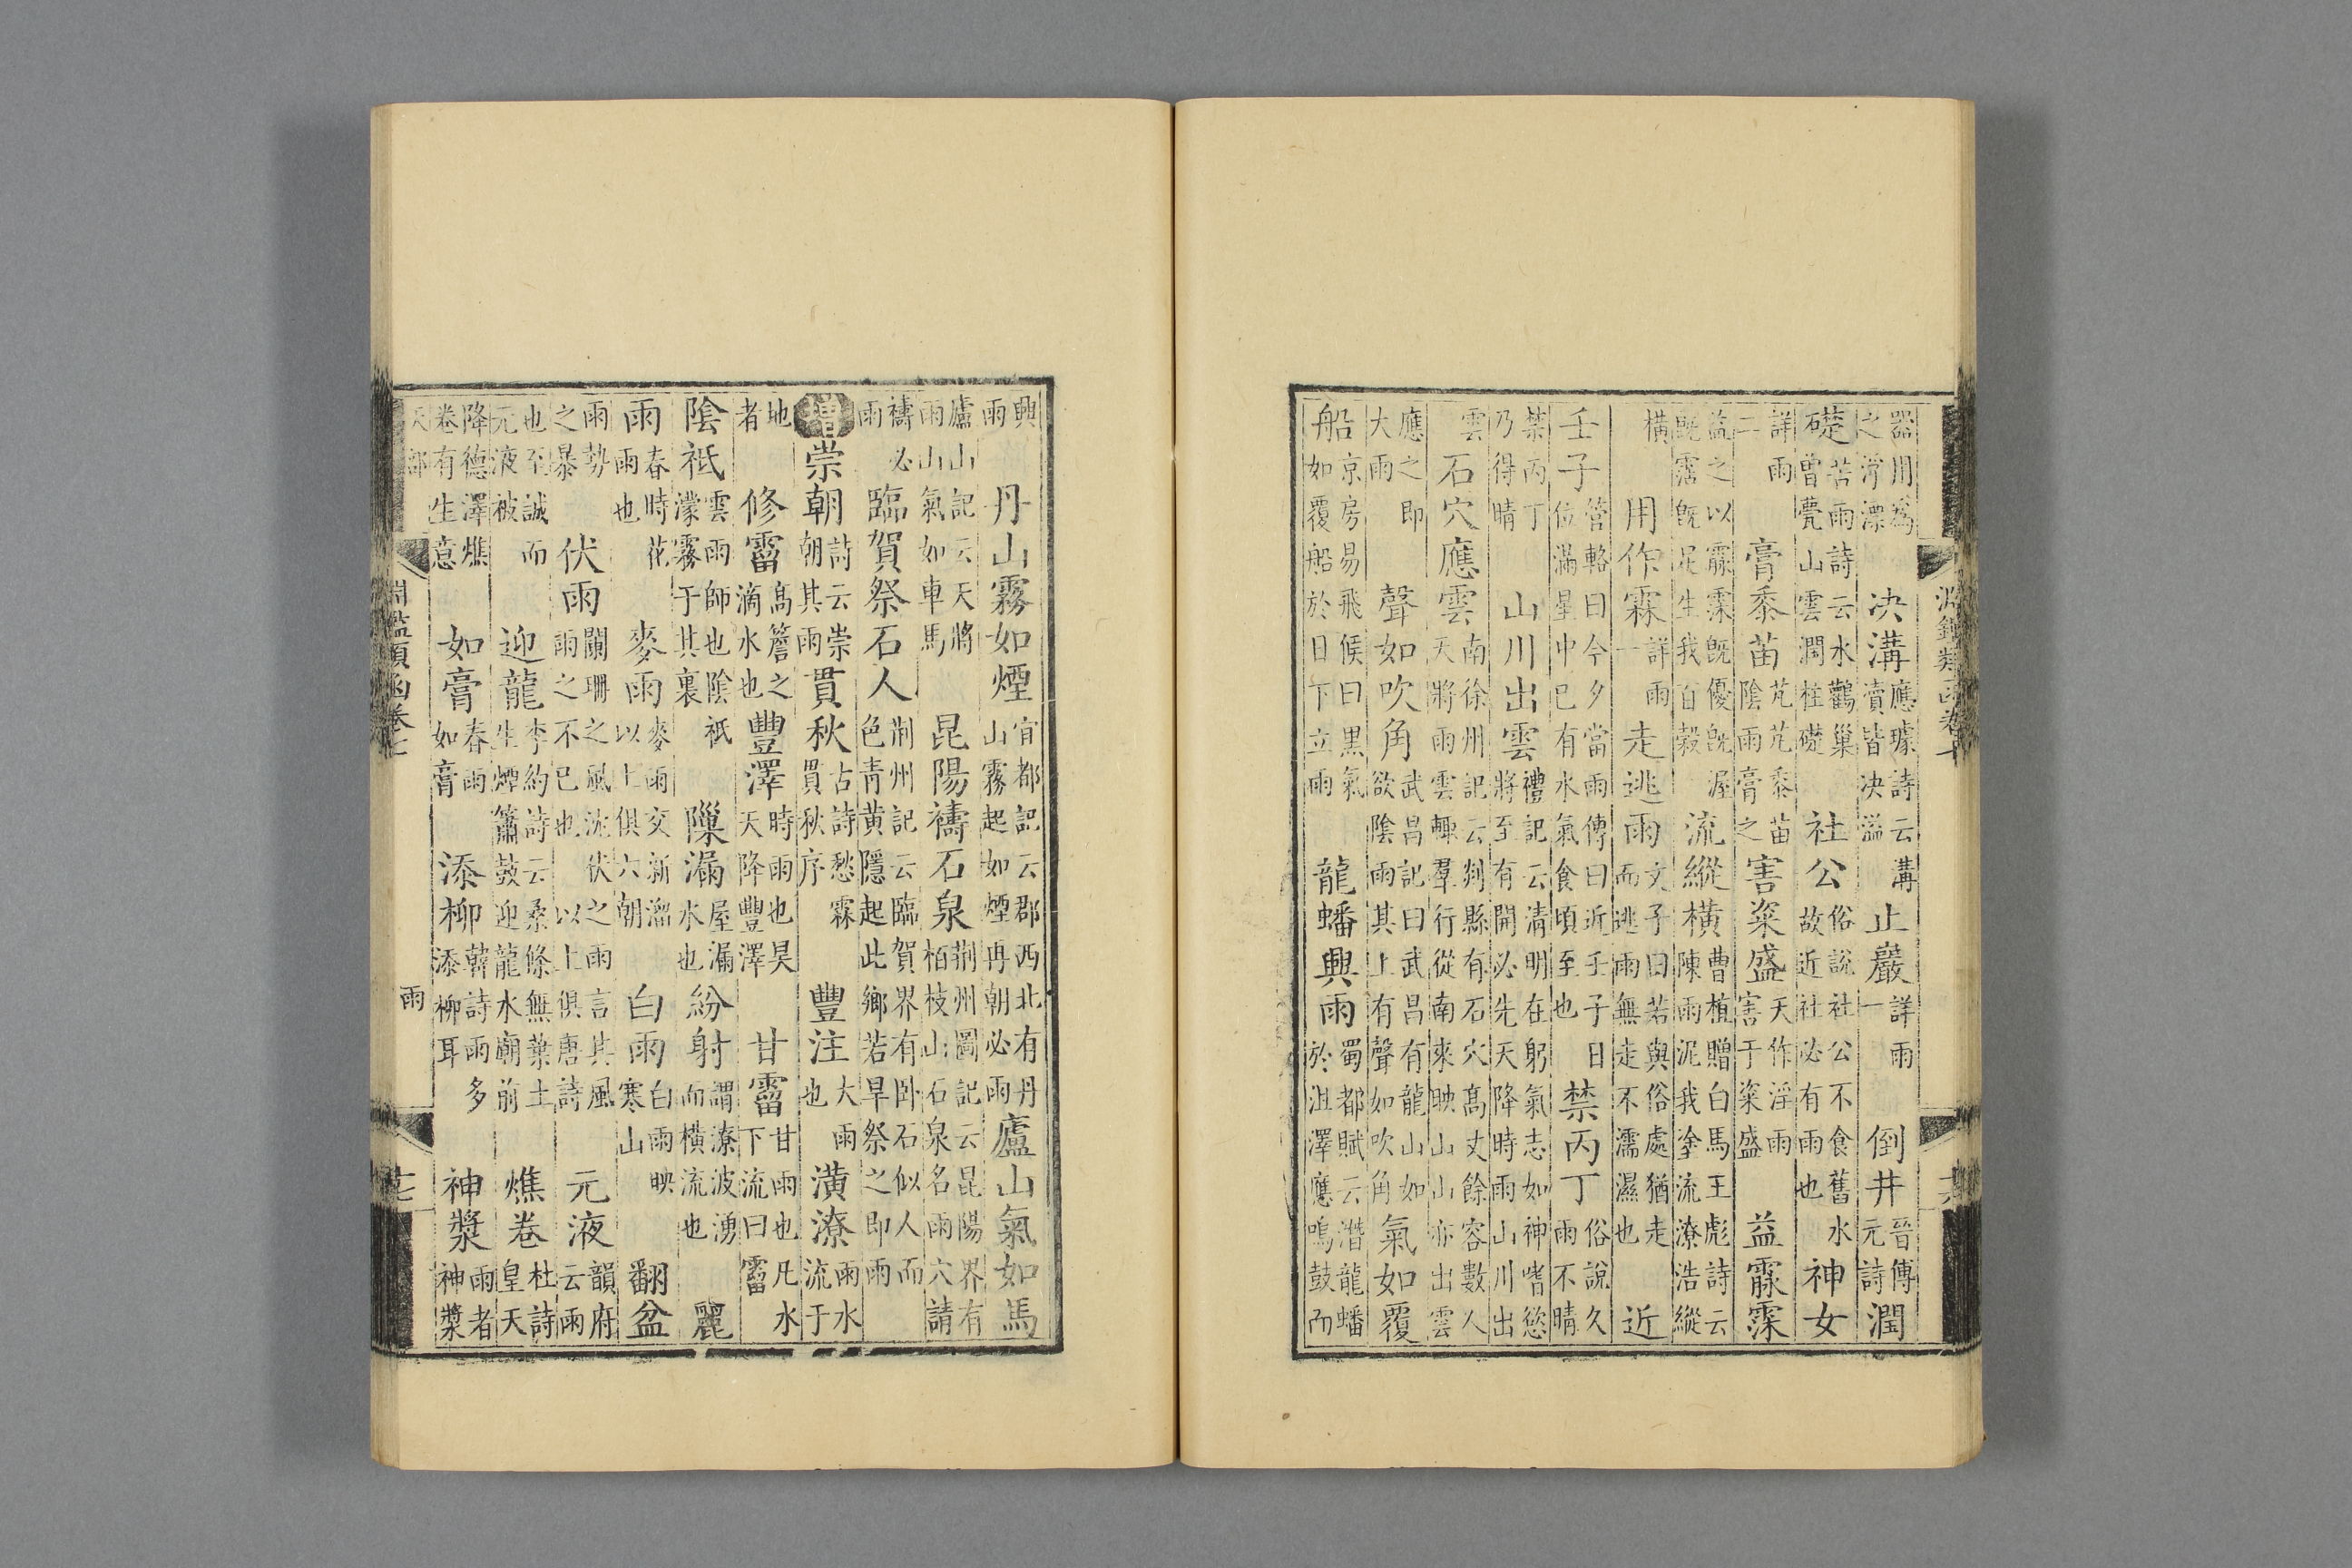 淵鑑類函卷七 十六
器用爲之滑漂 决溝應璩詩云溝瀆皆决溢 止巖詳雨一 倒井晉傅元詩 潤
礎苦雨詩云水鸛巢曾甍山雲潤柱礎 社公俗說社公不食舊水故近社必有雨也 神女
詳雨二 膏黍苗芃芃黍苗陰雨膏之 害粢盛天作淫雨害于粢盛 益霡霂
益之以霡霂旣優旣渥旣霑旣足生我百穀 流縱橫曹植贈白馬王彪詩云陳雨泥我塗流潦浩縱
橫 用作霖詳雨一 走逃雨文子曰若與俗處猶走而逃雨無走不濡濕也 近
壬子管輅曰今夕當雨傳曰近壬子日位滿星中已有水氣食頃至也 禁丙丁俗說久雨不晴
禁丙丁乃得晴 山川出雲禮記云清明在躬氣志如神嗜慾將至有開必先天降時雨山川出
雲 石穴應雲南徐州記云剡縣有石穴高丈餘容數人天將雨雲輙羣行從南來映山山亦出雲
應之即大雨 聲如吹角武昌記曰武昌有龍山如欲陰雨其上有聲如吹角 氣如覆
船京房易飛候曰黑氣如覆船於日下立雨 龍蟠興雨蜀都賦云潛龍蟠於沮澤應鳴鼓而
興雨 丹山霧如煙宜都記云郡西北有丹山霧起如煙冉朝必雨 廬山氣如馬
廬山記云天將雨山氣如車馬 昆陽禱石泉荆州圖記云昆陽界有栢枝山石泉名雨穴請
禱必雨 臨賀祭石人荆州記云臨賀界有卧石似人而色青黄隱起此鄉若旱祭之即雨
增崇朝詩云崇朝其雨 貫秋古詩愁霖貫秋序 豐注大雨也 潢潦雨水流于
地者 修霤高簷之滴水也 豐澤時雨也昊天降豐澤 甘霤甘雨也凡水下流曰霤
陰祗雲雨師也陰祇濛霧于其裏 隟漏屋漏水也 紛射謂潦波湧而橫流也 麗
雨春時花雨也 麥雨麥雨交新溜以上俱六朝 白雨白雨映寒山 翻盆
雨勢之暴 伏雨闌珊之風沈伏之雨言其風雨之不已也以上俱唐詩 元液韻府云雨
也至誠而元液被 迎龍李約詩云桑條無葉土生煙簫鼓迎龍水廟前 燋卷杜詩皇天
降德澤燋卷有生意 如膏春雨如膏 添柳韓詩雨多添柳耳 神漿雨者神漿
天部 淵鑑類函卷七 雨 十七